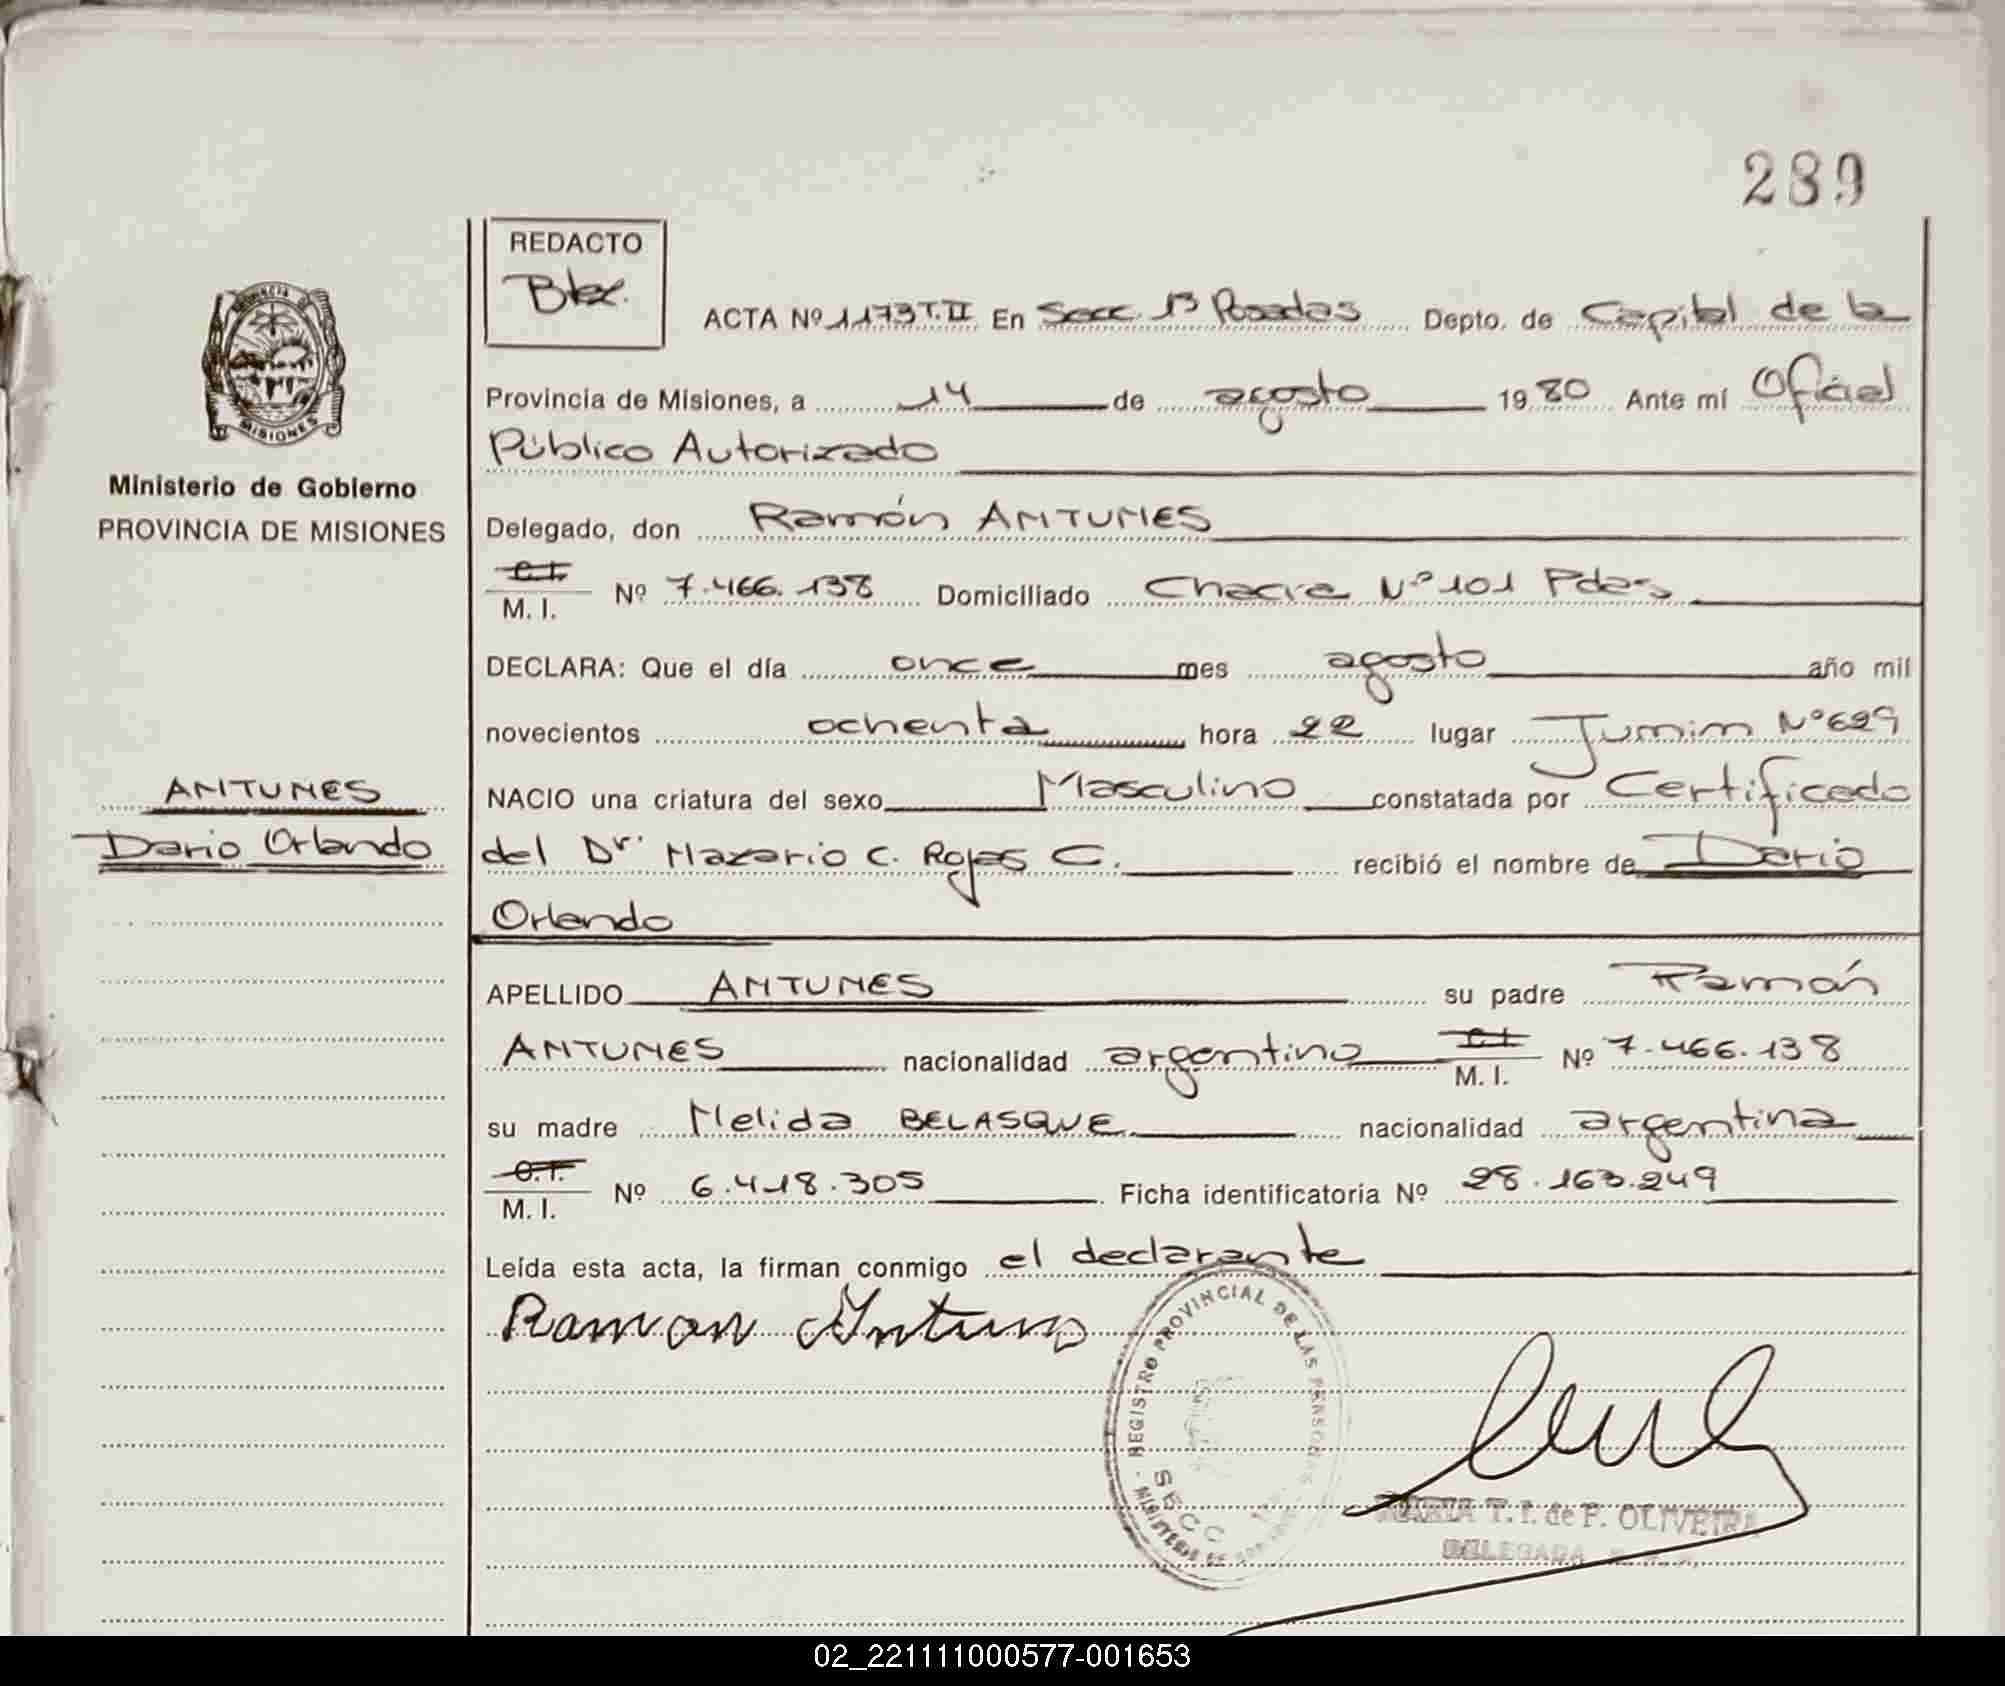 289
REDACTO
ACTA Nº 1173 T. II En Secc. 1ª Posadas Depto. de Capital de la
Provincia de Misiones, a 14 de agosto 1980 Ante mí Oficial
Público Autorizado
PROVINCIA DE
MISIONES
Ministerio de Gobierno
PROVINCIA DE MISIONES
Delegado, don Ramón ANTUNES
C.I.
M. I. Nº 7.466.138 Domiciliado Chacra Nº 101 Pdas
DECLARA: Que el día once mes agosto año mil
novecientos ochenta hora 22 lugar Junin Nº 629
ANTUNES
Dario Orlando
NACIO una criatura del sexo Masculino constatada por Certificado
del Dr. Nazario C. Rojas C. recibió el nombre de Dario
Orlando
APELLIDO ANTUNES su padre Ramón
ANTUNES nacionalidad argentino C.I. M. I. Nº 7.466.138
su madre Nelida BELASQUE nacionalidad argentina
C.I.
M. I. Nº 6.418.305 Ficha identificatoria Nº 28.163.249
Leída esta acta, la firman conmigo el declarante
Ramon Antunes
REGISTRO PROVINCIAL DE LAS PERSONAS
SECC
MARIA T. I. de F. OLIVEIRA
DELEGADA
02_221111000577-001653